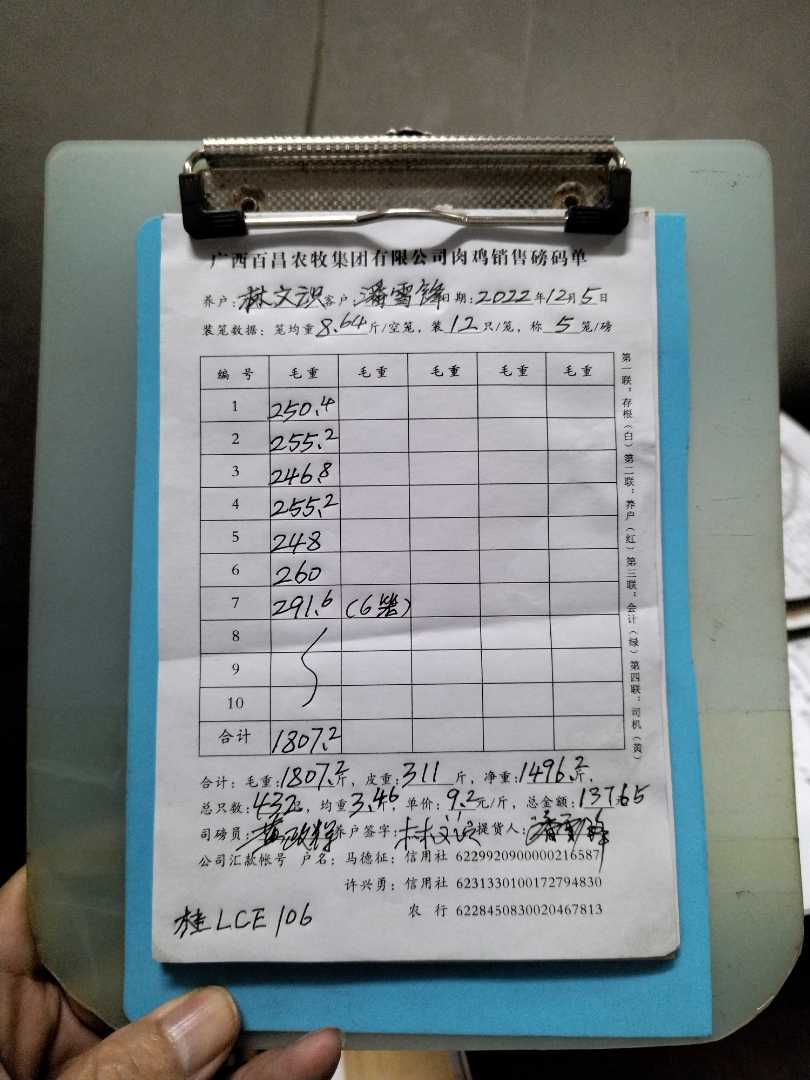 广西百昌农牧集团有限公司肉鸡销售磅码单
养户:林文识客户:潘雪锋日期:2022年12月5日
装笼数据:笼均重8.64斤/空笼,装12只/笼,称5笼/磅
编号 毛重 毛重 毛重 毛重 毛重
1 250.4
2 255.2
3 246.8
4 255.2
5 248
6 260
7 291.6 (6笼)
8
9
10
合计 1807.2
合计:毛重:1807.2斤,皮重:311斤,净重:1496.2斤,
总只数:432只,均重3.46,单价:9.2元/斤,总金额:13765
司磅员: 养户签字:林文识提货人:潘雪锋
公司汇款帐号 户名:马德征:信用社 6229920900000216587
许兴勇:信用社 6231330100172794830
农行 6228450830020467813
桂LCE106
第一联:存根(白)第二联:养户(红)第三联:会计(绿)第四联:司机(黄)